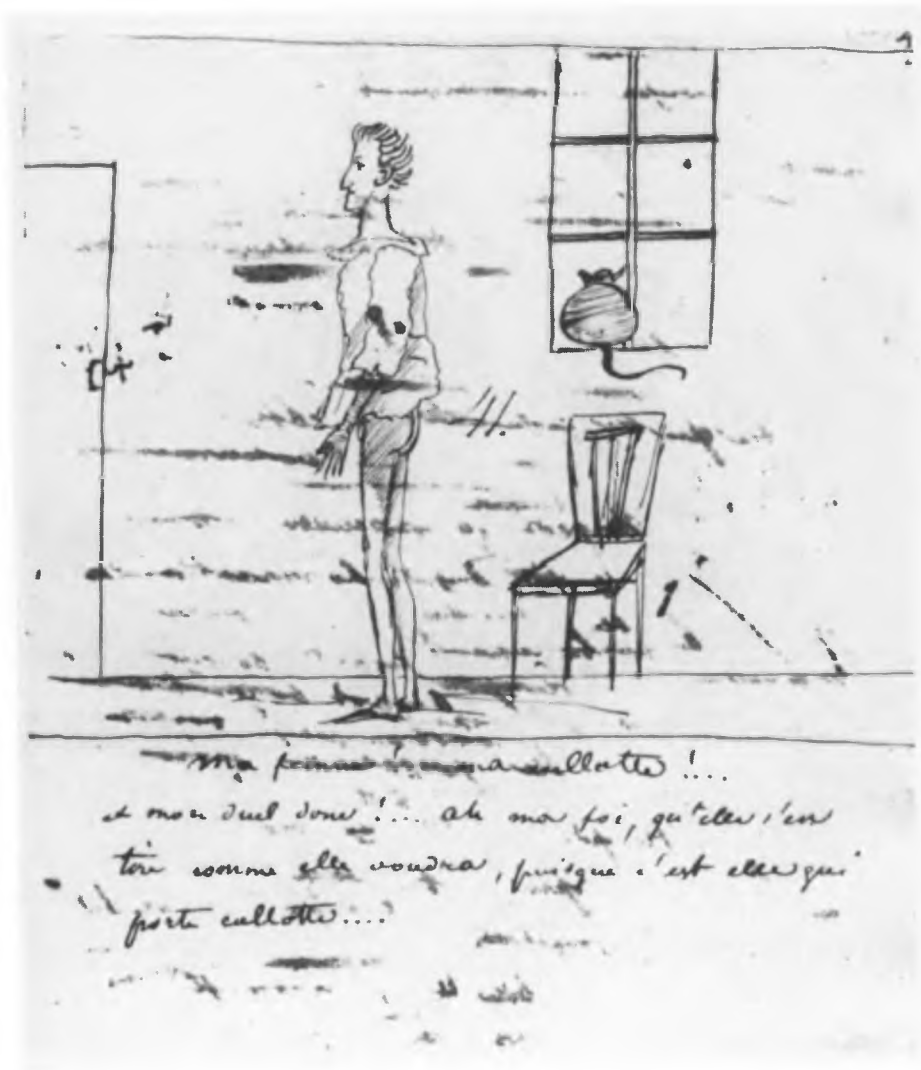 ma femme! ma cullotte!....
et mon duel donc!... ah ma foi, qu'elle s'en
tire comme elle voudra, puisque c'est elle qui
porte cullotte....